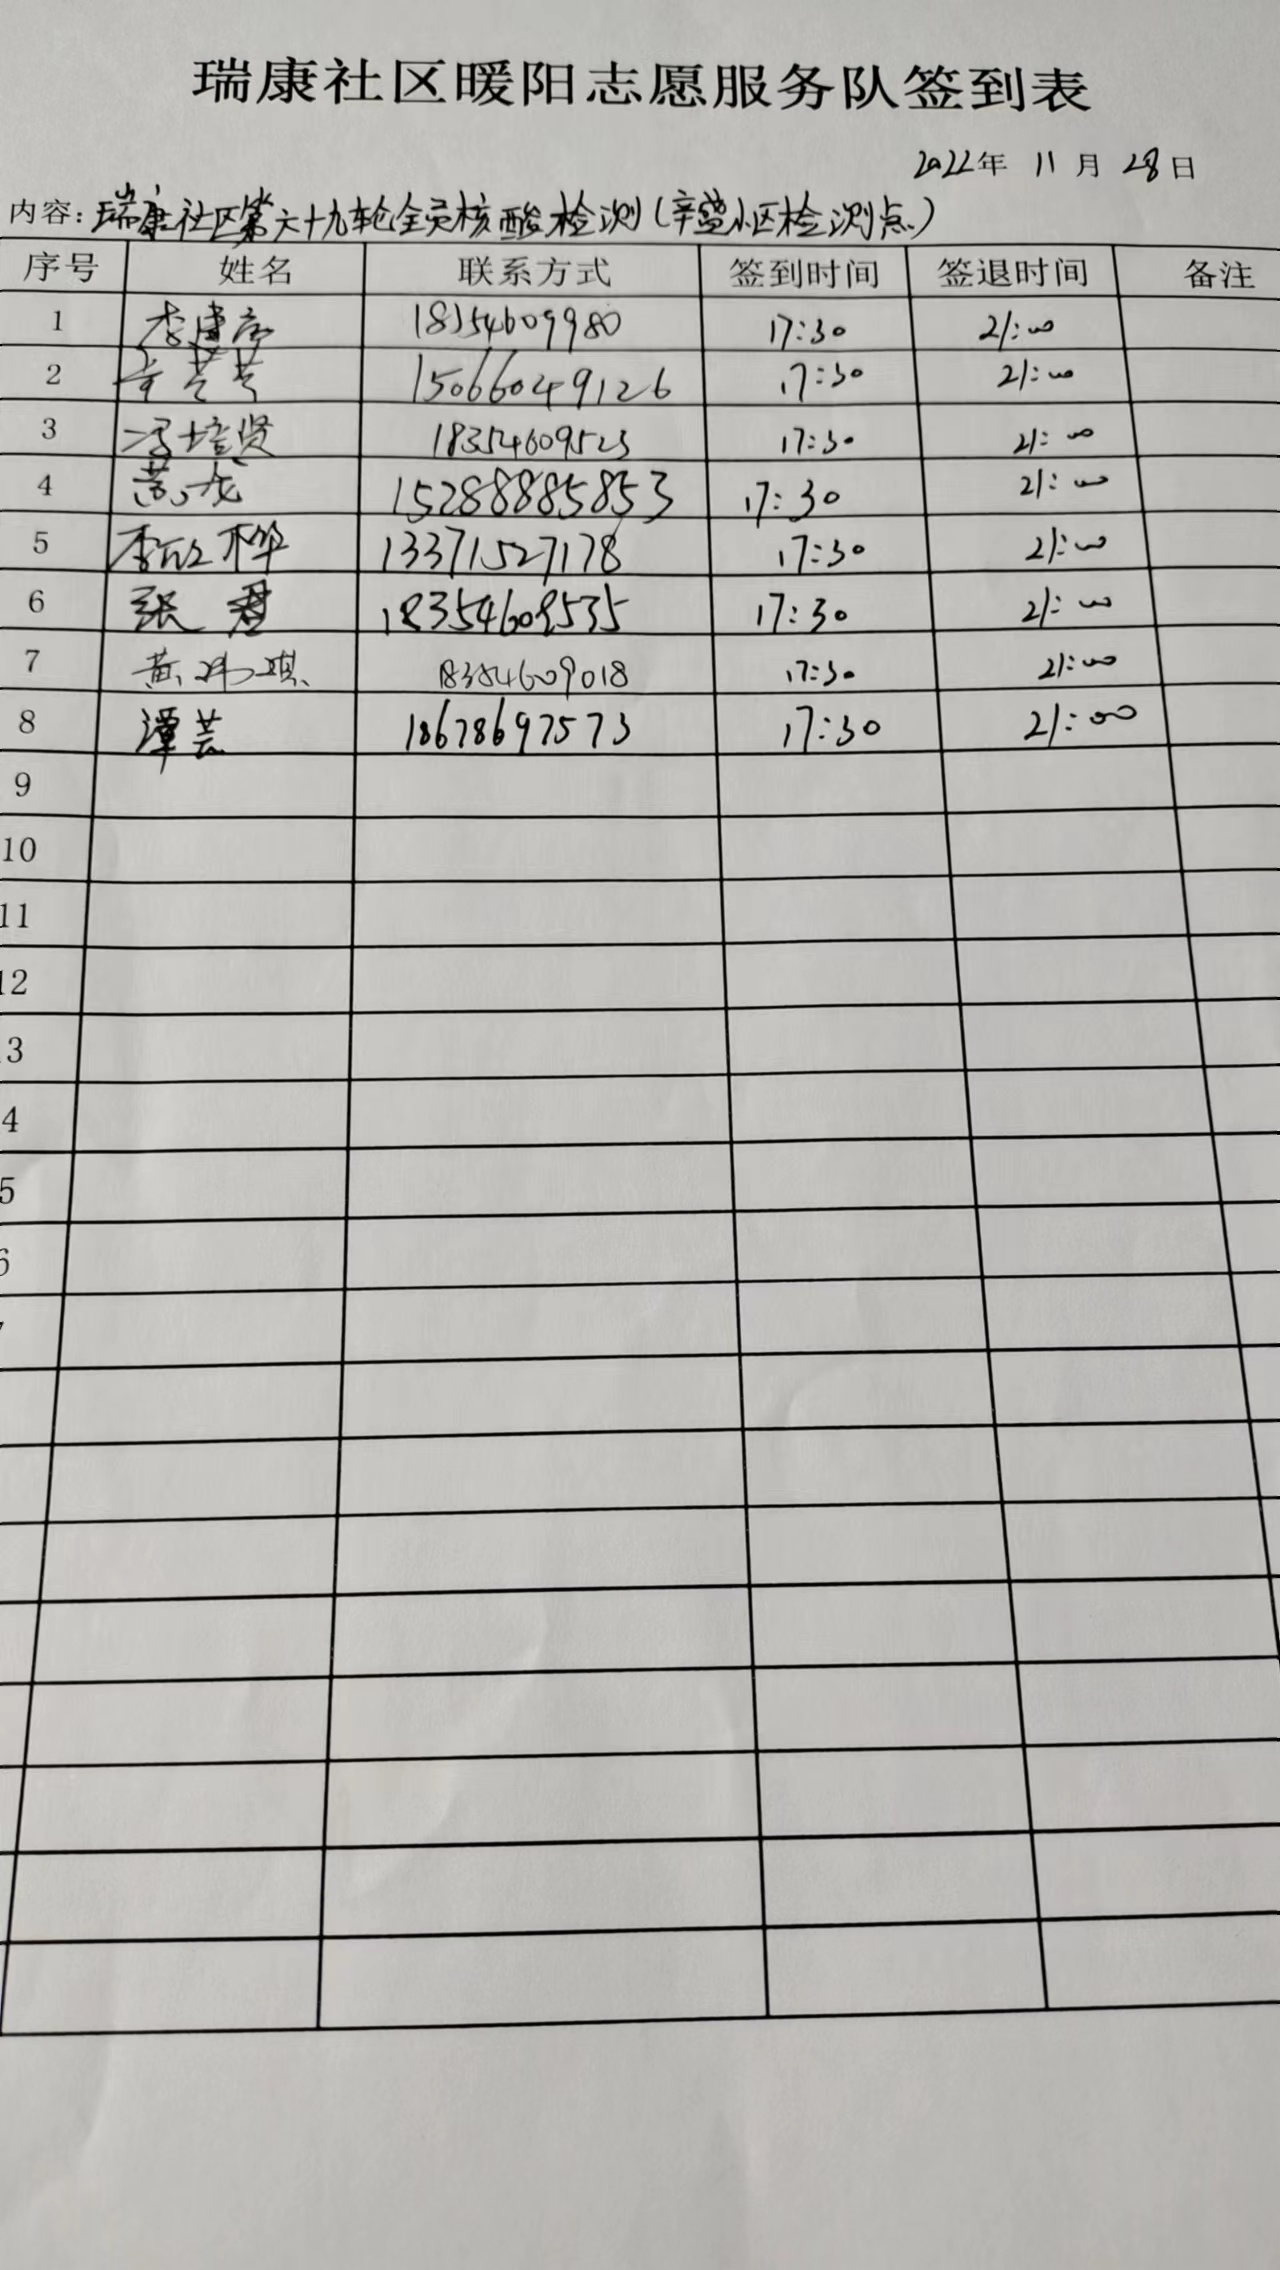 瑞康社区暖阳志愿服务队签到表
2022年 11月 28日
内容:瑞康社区第六十九轮全员核酸检测(辛盛小区检测点)
序号 姓名 联系方式 签到时间 签退时间 备注
1 李建 18354609980 17:30 21:00
2 15066049126 17:30 21:00
3 冯培贤 18354609523 17:30 21:00
4 黄龙 15288885853 17:30 21:00
5 李欣桦 13371527178 17:30 21:00
6 张君 18354609535 17:30 21:00
7 黄琪 18354609018 17:30 21:00
8 潭芸 18678697573 17:30 21:00
9
10
11
12
3
4
5
6